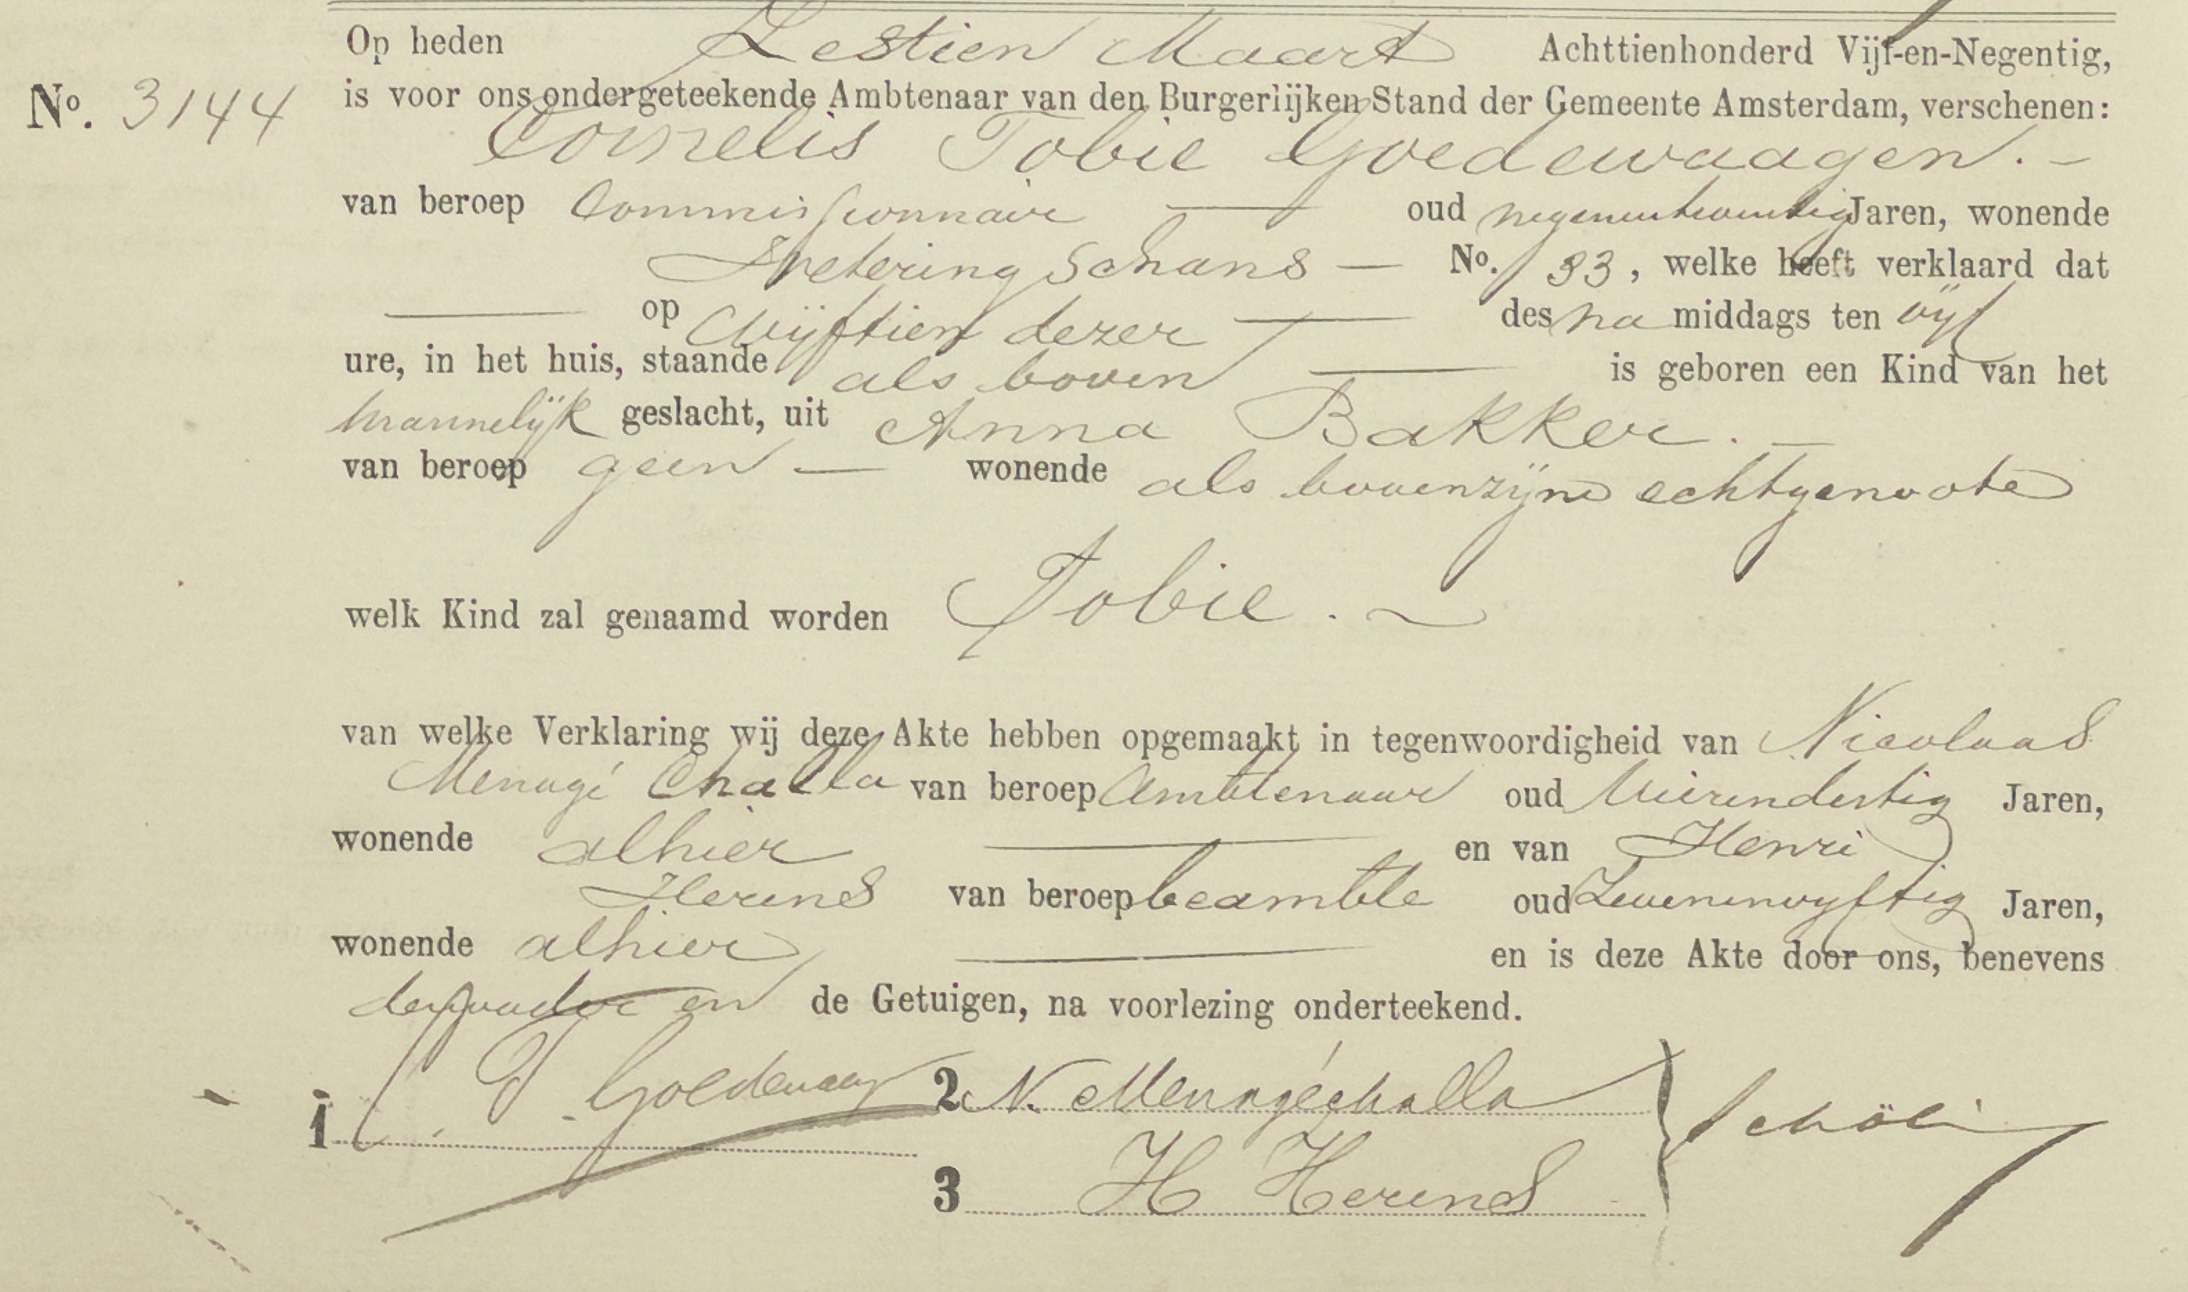 Op heden Zestien Maart Achttienhonderd Vijf-en-Negentig,
No. 3144 is voor ons ondergeteekende Ambtenaar van den Burgerlijken Stand der Gemeente Amsterdam, verschenen:
Cornelis Tobie Goedewaagen. -
van beroep Commissionnair — oud negenentwintig Jaren, wonende
Weteringschans — No. 33, welke heeft verklaard dat
— op Vijftien dezer — des na middags ten vijf
ure, in het huis, staande als boven — is geboren een Kind van het
mannelijk geslacht, uit Anna Bakker. —
van beroep geen — wonende als boven zijne echtgenoote
welk Kind zal genaamd worden Tobie. ~
van welke Verklaring wij deze Akte hebben opgemaakt in tegenwoordigheid van Nicolaas
Menagé Challa van beroep Ambtenaar oud Vierendertig Jaren,
wonende alhier — en van Henri
Herens van beroep beambte oud Zevenenvyftig Jaren,
wonende alhier — en is deze Akte door ons, benevens
de vader en de Getuigen, na voorlezing onderteekend.
1 C. T. Goedewaag 2 N. Menagéchalla
3 H Herens